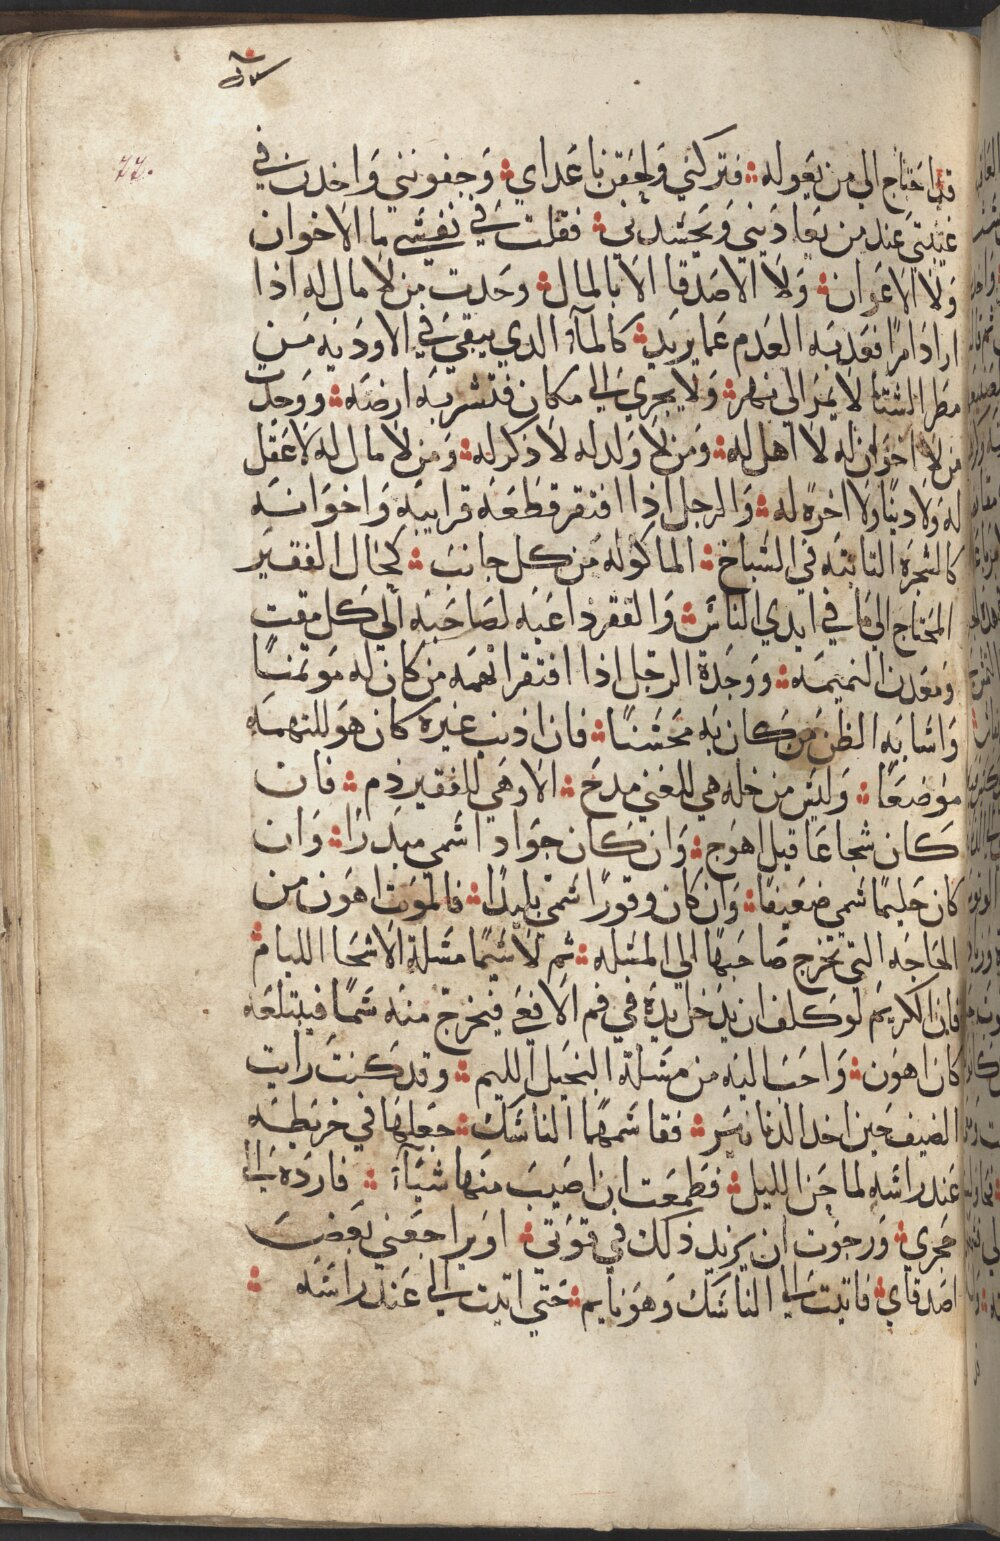 77.
قد احتاج الي من يعوله فتركني ولحقن باعداي وجفونني واخدن في
غيبتي عند من يعاديني ويحسدني فقلت في نفسي ما الاخوان
ولا الاعوان ولا الاصدقا الا بالمال وجدت من لا مال له اذا
اراد امرًا قعد به العدم عما يريد كالمآء الدي يبقي في الاوديه من
مطر الشتا لا يمر الي نهر ولا يجري الي مكان فتشربه ارضه ووجدت
من لا اخوان له لا اهل له ومن لا ولد له لا ذكر له ومن لا مال له لا عقل
له ولا دينًا ولا اخرة له والرجل اذا افتقر قطعه قرايبه واخوانه
كالشجره النابته في السباخ الماكوله من كل جانب كحال الفقير
المحتاج الي ما في ايدي الناس والفقر داعيه لصاحبه الي كل مقت
ومعدن النميمه ووجدة الرجل اذا افتقر اتهمه من كان له موتمنًا
واسا به الظن من كان به محسنًا فان اذنب غيره كان هو للتهمه
موضعًا وليس من خله هي للغني مدح الا وهي للفقير ذم فان
كان شجاعًا قيل اهوج وان كان جوادا سمي مبدرًا وان
كان حليمًا سمي ضعيفًا وان كان وقورًا سمي بليدًا فالموت اهون من
الحاجه التي تخرج صاحبها الي المسله ثم لا سيما مسلة الاشحا الليام
فان الكريم لو كلف ان يدخل يده في فم الافعي فيخرج منه سمًا فيبتلعه
كان اهون واحب اليه من مسلة البخيل الليم وقد كنت رايت
الضيف حين اخد الدنانير فقاسمها الناسك جعلها في خريطه
عند راسه لما جن الليل فطمعت ان اصيب منها شيآء فارده الي
حجري ورجوت ان يزيد ذلك في قوتي او يراجعني بعض
اصدقاي فاتيت الي الناسك وهو نايم حتي اتيت الي عند راسه